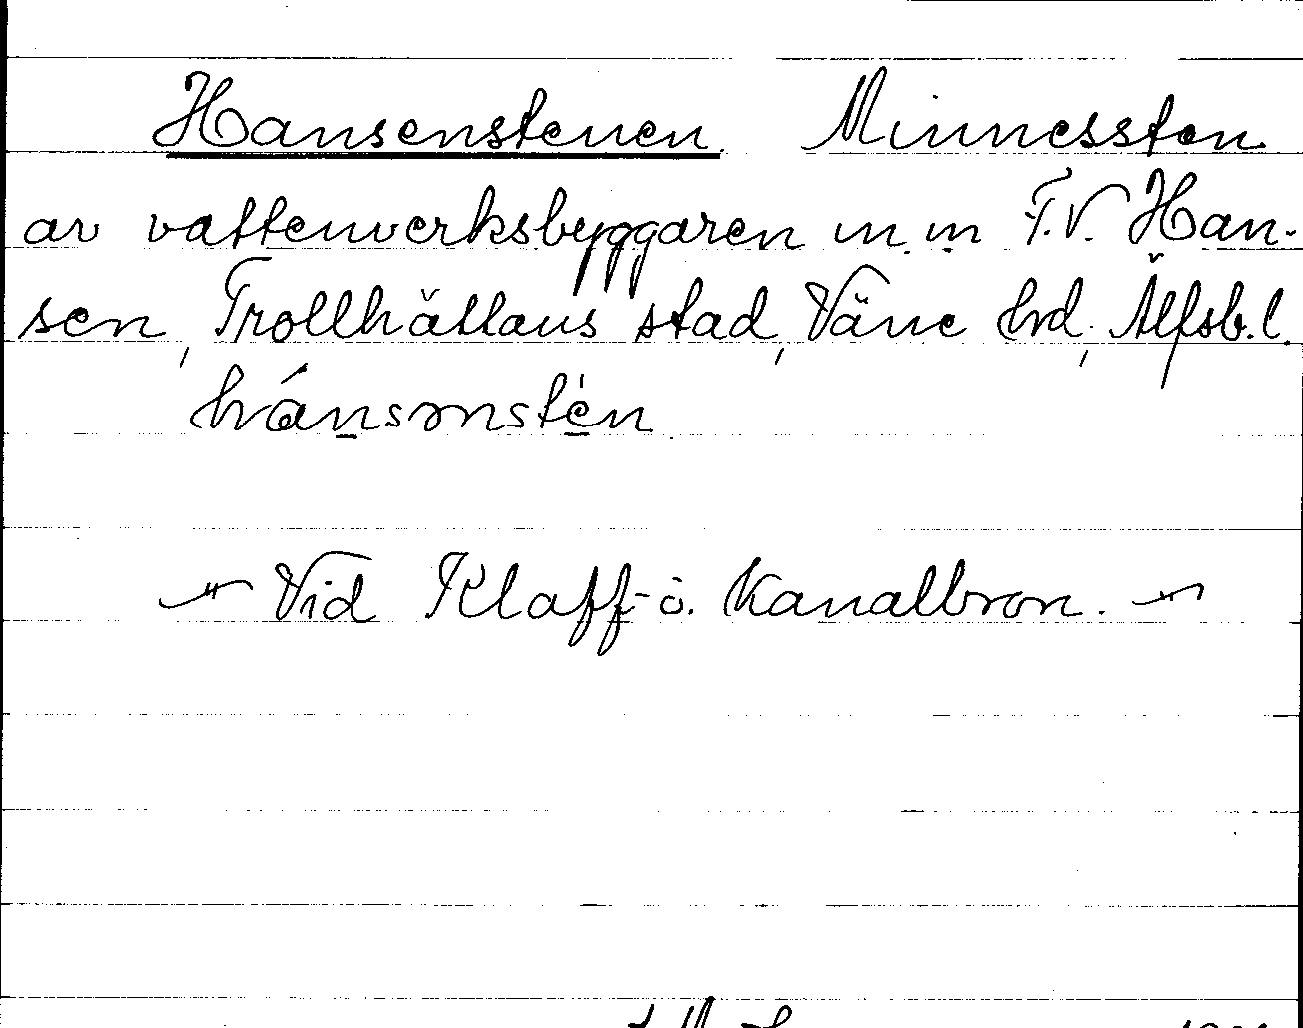 Hansenstenen Minnessten
av vattenverksbyggaren m. m F.V. Han-
sen, Trollhättans stad, Väne hrd, Älfsb.l.
hánsɷnstèn
—"— Vid Klaff- o. Kanalbron. —"—